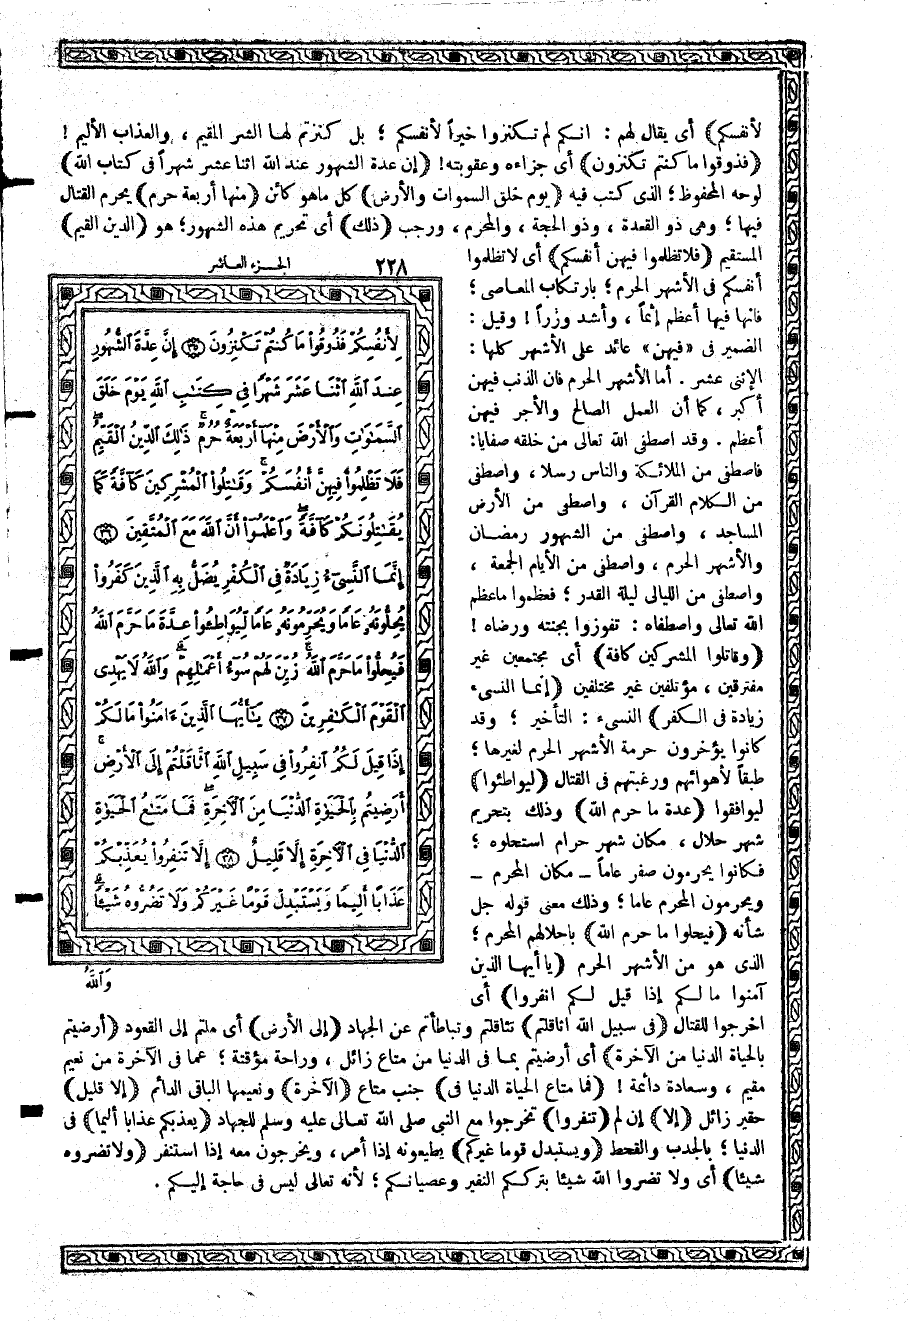 لأنفسكم) أى يقال لهم : انكم لم تكنزوا خيراً لأنفسكم ؛ بل كنزتم لها الشر المقيم ، والعذاب الأليم !
(فذوقوا ما كنتم تكنزون) أى جزاءه وعقوبته! (إن عدة الشهور عند الله اثنا عشر شهراً فى كتاب الله)
لوحه المحفوظ ؛ الذى كتب فيه (يوم خلق السموات والأرض) كل ماهو كائن (منها أربعة حرم) يحرم القتال
فيها ؛ وهى ذو القعدة ، وذو الحجة ، والمحرم ، ورجب (ذلك) أى تحريم هذه الشهور؛ هو (الدين القيم)
المستقيم (فلاتظلموا فيهن أنفسكم) أى لا تظلموا
أنفسكم فى الأشهر الحرم ؛ بارتكاب المعاصى ؛
فانها فيها أعظم إثماً ، وأشد وزراً ! وقيل :
الضمير فى «فيهن» عائد على الأشهر كلها :
الإثنى عشر . أما الأشهر الحرم فان الذنب فيهن
أكبر ، كما أن العمل الصالح والأجر فيهن
أعظم . وقد اصطفى الله تعالى من خلقه صفايا:
فاصطفى من الملائكة والناس رسلا ، واصطفى
من الكلام القرآن ، واصطفى من الأرض
المساجد ، واصطفى من الشهور رمضان
والأشهر الحرم ، واصطفى من الأيام الجمعة ،
واصطفى من الليالى ليلة القدر ؛ فعظموا ماعظم
الله تعالى واصطفاه : تفوزوا بجنته ورضاه !
(وقاتلوا المشركين كافة) أى مجتمعين غير
مفترقين ، مؤتلفين غير مختلفين (إنما النسىء
زيادة فى الكفر) النسىء : التأخير ؛ وقد
كانوا يؤخرون حرمة الأشهر الحرم لغيرها ؛
طبقاً لأهوائهم ورغبتهم فى القتال (ليواطئوا)
ليوافقوا (عدة ما حرم الله) وذلك بتحريم
شهر حلال ، مكان شهر حرام استحلوه ؛
فكانوا يحرمون صفر عاماً – مكان المحرم –
ويحرمون المحرم عاما ؛ وذلك معنى قوله جل
شأنه (فيحلوا ما حرم الله) باحلالهم المحرم ؛
الذى هو من الأشهر الحرم (يا أيها الذين
آمنوا مالكم إذا قيل لكم انفروا) أى
الجزء العاشر ٢٢٨
لِأَنفُسِكُمْ فَذُوقُوا۟ مَا كُنتُمْ تَكْنِزُونَ ٣٥ إِنَّ عِدَّةَ ٱلشُّهُورِ
عِندَ ٱللَّهِ ٱثْنَا عَشَرَ شَهْرًا فِى كِتَٰبِ ٱللَّهِ يَوْمَ خَلَقَ
ٱلسَّمَٰوَٰتِ وَٱلْأَرْضَ مِنْهَآ أَرْبَعَةٌ حُرُمٌ ۚ ذَٰلِكَ ٱلدِّينُ ٱلْقَيِّمُ ۚ
فَلَا تَظْلِمُوا۟ فِيهِنَّ أَنفُسَكُمْ ۚ وَقَٰتِلُوا۟ ٱلْمُشْرِكِينَ كَآفَّةً كَمَا
يُقَٰتِلُونَكُمْ كَآفَّةً ۚ وَٱعْلَمُوٓا۟ أَنَّ ٱللَّهَ مَعَ ٱلْمُتَّقِينَ ٣٦
إِنَّمَا ٱلنَّسِىٓءُ زِيَادَةٌ فِى ٱلْكُفْرِ يُضَلُّ بِهِ ٱلَّذِينَ كَفَرُوا۟
يُحِلُّونَهُۥ عَامًا وَيُحَرِّمُونَهُۥ عَامًا لِّيُوَاطِـُٔوا۟ عِدَّةَ مَا حَرَّمَ ٱللَّهُ
فَيُحِلُّوا۟ مَا حَرَّمَ ٱللَّهُ ۚ زُيِّنَ لَهُمْ سُوٓءُ أَعْمَٰلِهِمْ ۗ وَٱللَّهُ لَا يَهْدِى
ٱلْقَوْمَ ٱلْكَٰفِرِينَ ٣٧ يَٰٓأَيُّهَا ٱلَّذِينَ ءَامَنُوا۟ مَا لَكُمْ
إِذَا قِيلَ لَكُمُ ٱنفِرُوا۟ فِى سَبِيلِ ٱللَّهِ ٱثَّاقَلْتُمْ إِلَى ٱلْأَرْضِ ۚ
أَرَضِيتُم بِٱلْحَيَوٰةِ ٱلدُّنْيَا مِنَ ٱلْءَاخِرَةِ ۚ فَمَا مَتَٰعُ ٱلْحَيَوٰةِ
ٱلدُّنْيَا فِى ٱلْءَاخِرَةِ إِلَّا قَلِيلٌ ٣٨ إِلَّا تَنفِرُوا۟ يُعَذِّبْكُمْ
عَذَابًا أَلِيمًا وَيَسْتَبْدِلْ قَوْمًا غَيْرَكُمْ وَلَا تَضُرُّوهُ شَيْـًٔا ۗ
وَٱللَّهُ
اخرجوا للقتال (فى سبيل الله اثاقلتم) تثاقلتم وتباطأتم عن الجهاد (إلى الأرض) أى ملتم إلى القعود (أرضيتم
بالحياة الدنيا من الآخرة) أى أرضيتم بما فى الدنيا من متاع زائل ، وراحة مؤقتة ؛ عما فى الآخرة من نعيم
مقيم ، وسعادة دائمة ! (فما متاع الحياة الدنيا فى) جنب متاع (الآخرة) ونعيمها الباقى الدائم (إلا قليل)
حقير زائل (إلا) إن لم (تنفروا) تخرجوا مع النبي صلى الله تعالى عليه وسلم للجهاد (يعذبكم عذابا أليما) فى
الدنيا ؛ بالجدب والقحط (ويستبدل قوما غيركم) يطيعونه إذا أمر ، ويخرجون معه إذا استنفر (ولا تضروه
شيئا) أى ولا تضروا الله شيئا بترككم النفير وعصيانكم ؛ لأنه تعالى ليس فى حاجة إليكم .